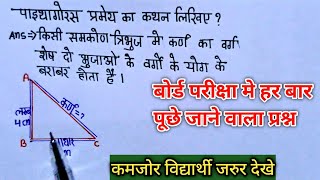 पाइथागोरस प्रमेय का कथन लिखिए ?
Ans → किसी समकोण त्रिभुज मे कर्ण का वर्ग
शेष दो भुजाओ के वर्गो के योग के
बराबर होता है ।
बोर्ड परीक्षा मे हर बार
पूछे जाने वाला प्रश्न
A
लम्ब
4cm
कर्ण=?
B
C
कमजोर विद्यार्थी जरुर देखे